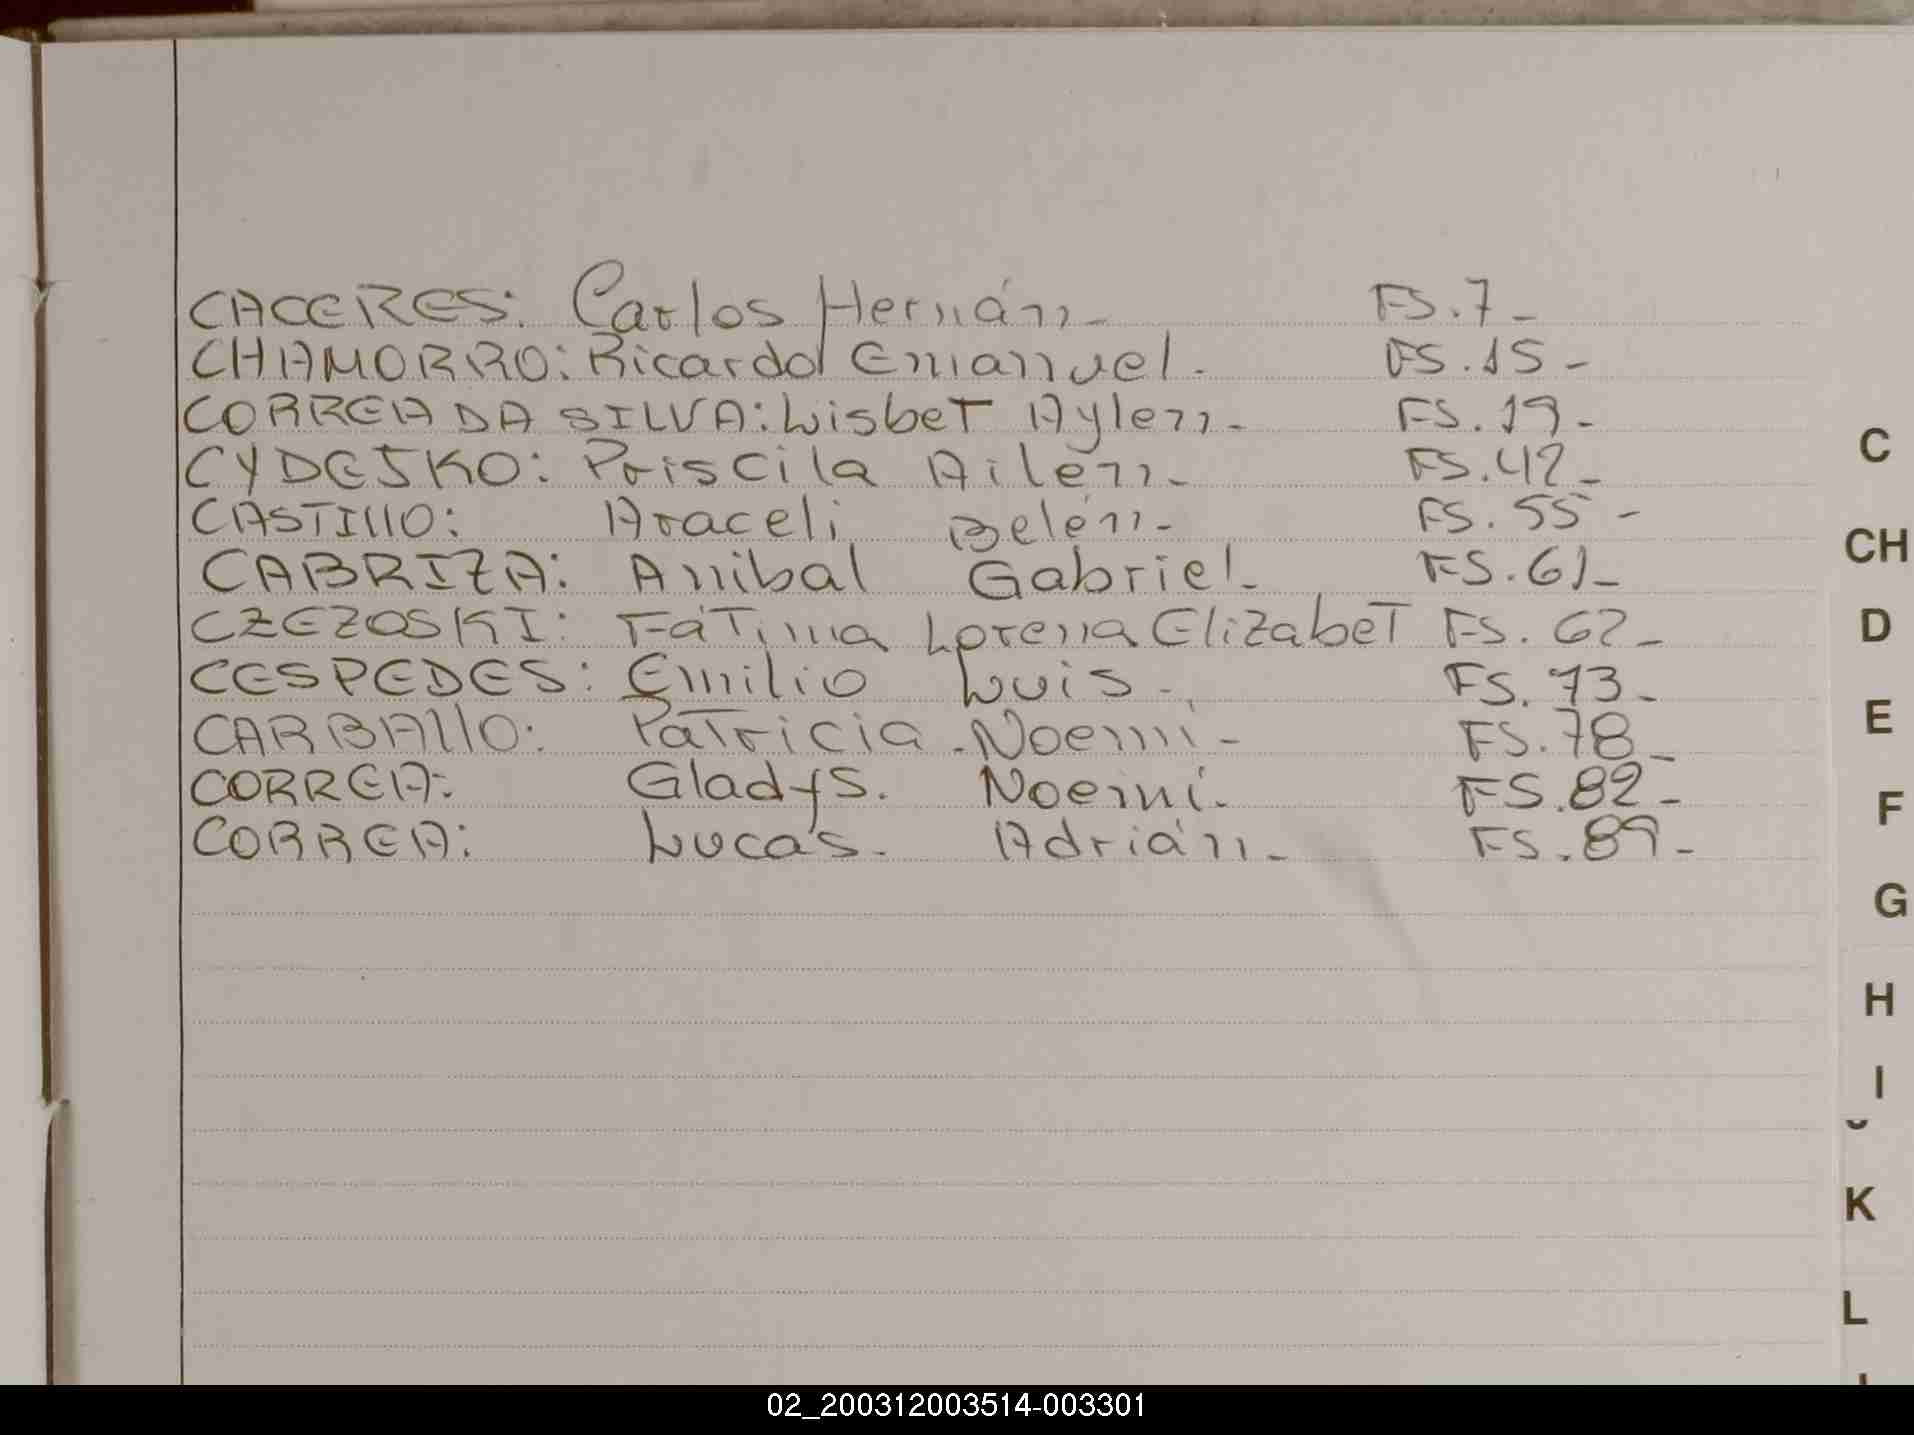 CACERES: Carlos Hernán- FS.7-
CHAMORRO: Ricardo Emanuel. FS.15-
CORREA DA SILVA: Lisbet Aylen- FS.19-
CYDEJKO: Priscila Ailèn- FS.42-
CASTILLO: Araceli Belén- FS.55-
CABRIZA: Anibal Gabriel- FS.61-
CZEZOSKI: Fátima Lorena Elizabet FS.62-
CESPEDES: Emilio Luis- FS.73-
CARBALLO: Patricia Noemí- FS.78-
CORREA: Gladys. Noemí. FS.82-
CORREA: Lucas. Adrián- FS.89-
C
CH
D
E
F
G
H
I
K
L
02_200312003514-003301